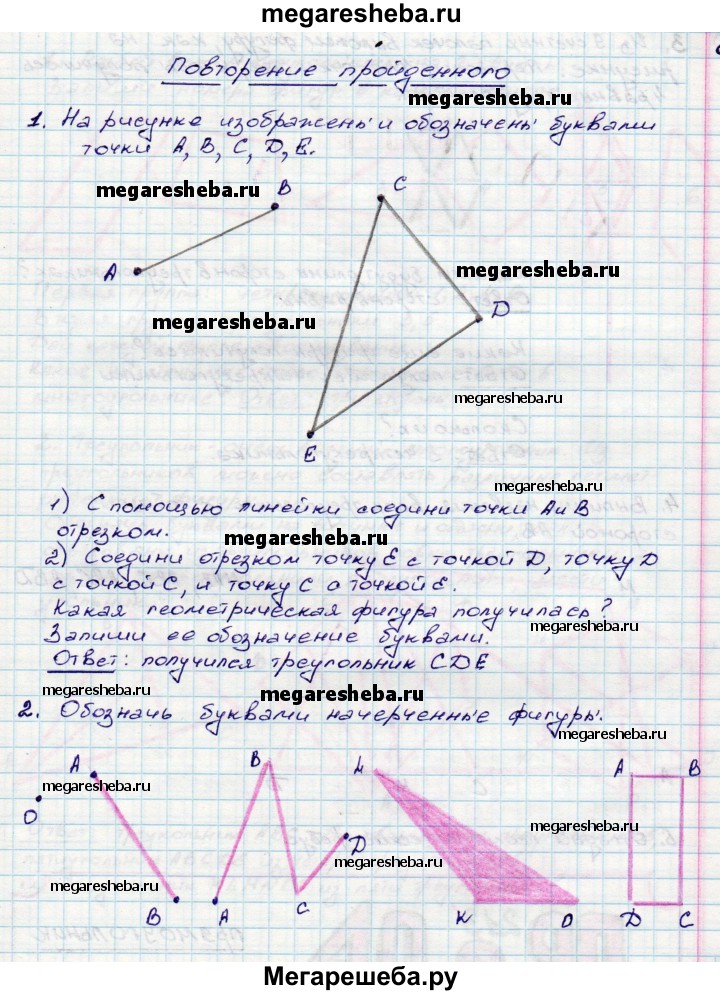 megaresheba.ru
Повторение пройденного
megaresheba.ru
1. На рисунке изображены и обозначены буквами
точки А, В, С, D, Е.
B
C
megaresheba.ru
A
megaresheba.ru
D
megaresheba.ru
megaresheba.ru
E
megaresheba.ru
1) С помощью линейки соедини точки А и В
отрезком.
megaresheba.ru
2) Соедини отрезком точку Е с точкой D, точку D
с точкой С, и точку С с точкой Е.
Какая геометрическая фигура получилась?
megaresheba.ru
Запиши ее обозначение буквами.
Ответ: получился треугольник CDE
megaresheba.ru
megaresheba.ru
megaresheba.ru
2. Обозначь буквами начерченные фигуры.
A
B
A
B
megaresheba.ru
O
megaresheba.ru
D
megaresheba.ru
megaresheba.ru
B
A
C
K
O
D
C
Мегарешеба.ру